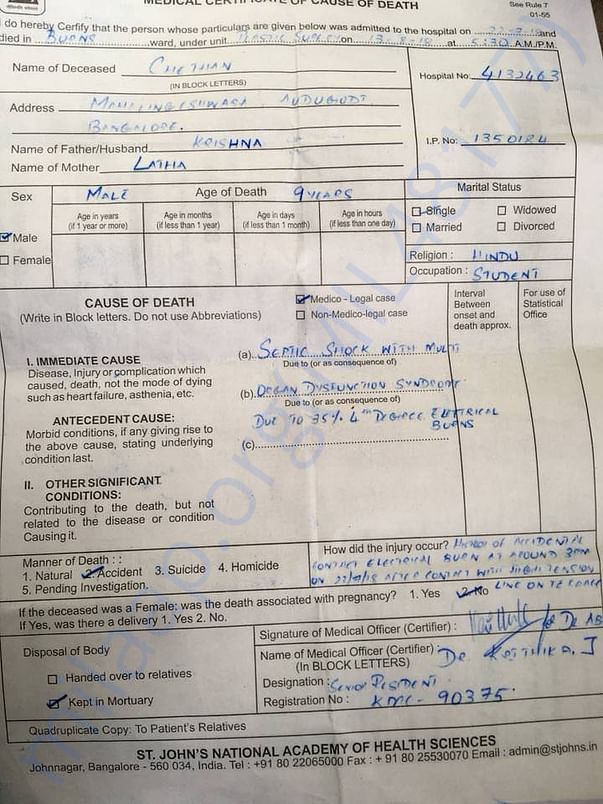 MEDICAL CERTIFICATE OF CAUSE OF DEATH
See Rule 7
01-55
I do hereby Certify that the person whose particulars are given below was admitted to the hospital on and
died in BURNS ward, under unit PLASTIC SURGERY on 13-8-18 at 5:30 A.M./P.M.
Name of Deceased CHETHAN
(IN BLOCK LETTERS)
Hospital No: 4132463
Address
BANGALORE.
Name of Father/Husband KRISHNA
I.P. No: 1350124
Name of Mother LATHA
Sex MALE Age of Death 9 YEARS Marital Status
Age in years (if 1 year or more)
Age in months (if less than 1 year)
Age in days (if less than 1 month)
Age in hours (if less than one day)
Single Widowed
Married Divorced
Male
Female
Religion : HINDU
Occupation : STUDENT
CAUSE OF DEATH
(Write in Block letters. Do not use Abbreviations)
Medico - Legal case
Non-Medico-legal case
Interval Between onset and death approx.
For use of Statistical Office
I. IMMEDIATE CAUSE
Disease, Injury or complication which
caused, death, not the mode of dying
such as heart failure, asthenia, etc.
(a) SEPTIC SHOCK WITH MULTI
Due to (or as consequence of)
(b) ORGAN DYSFUNCTION SYNDROME
Due to (or as consequence of)
ANTECEDENT CAUSE:
Morbid conditions, if any giving rise to
the above cause, stating underlying
condition last.
DUE TO 35% 4th DEGREE ELECTRICAL
BURNS
(c)
II. OTHER SIGNIFICANT
CONDITIONS:
Contributing to the death, but not
related to the disease or condition
Causing it.
Manner of Death : :
1. Natural 2. Accident 3. Suicide 4. Homicide
5. Pending Investigation.
How did the injury occur? OF ACCIDENTAL
CONTACT ELECTRICAL BURN AT AROUND 3PM
ON AFTER CONTACT WITH HIGH TENSION
LINE ON
If the deceased was a Female: was the death associated with pregnancy? 1. Yes 2. No
If Yes, was there a delivery 1. Yes 2. No.
Disposal of Body
Handed over to relatives
Kept in Mortuary
Signature of Medical Officer (Certifier) :
Name of Medical Officer (Certifier) : Dr J
(IN BLOCK LETTERS)
Designation : SENIOR RESIDENT
Registration No : KMC - 90375
Quadruplicate Copy: To Patient's Relatives
ST. JOHN'S NATIONAL ACADEMY OF HEALTH SCIENCES
Johnnagar, Bangalore - 560 034, India. Tel : +91 80 22065000 Fax : + 91 80 25530070 Email : admin@stjohns.in